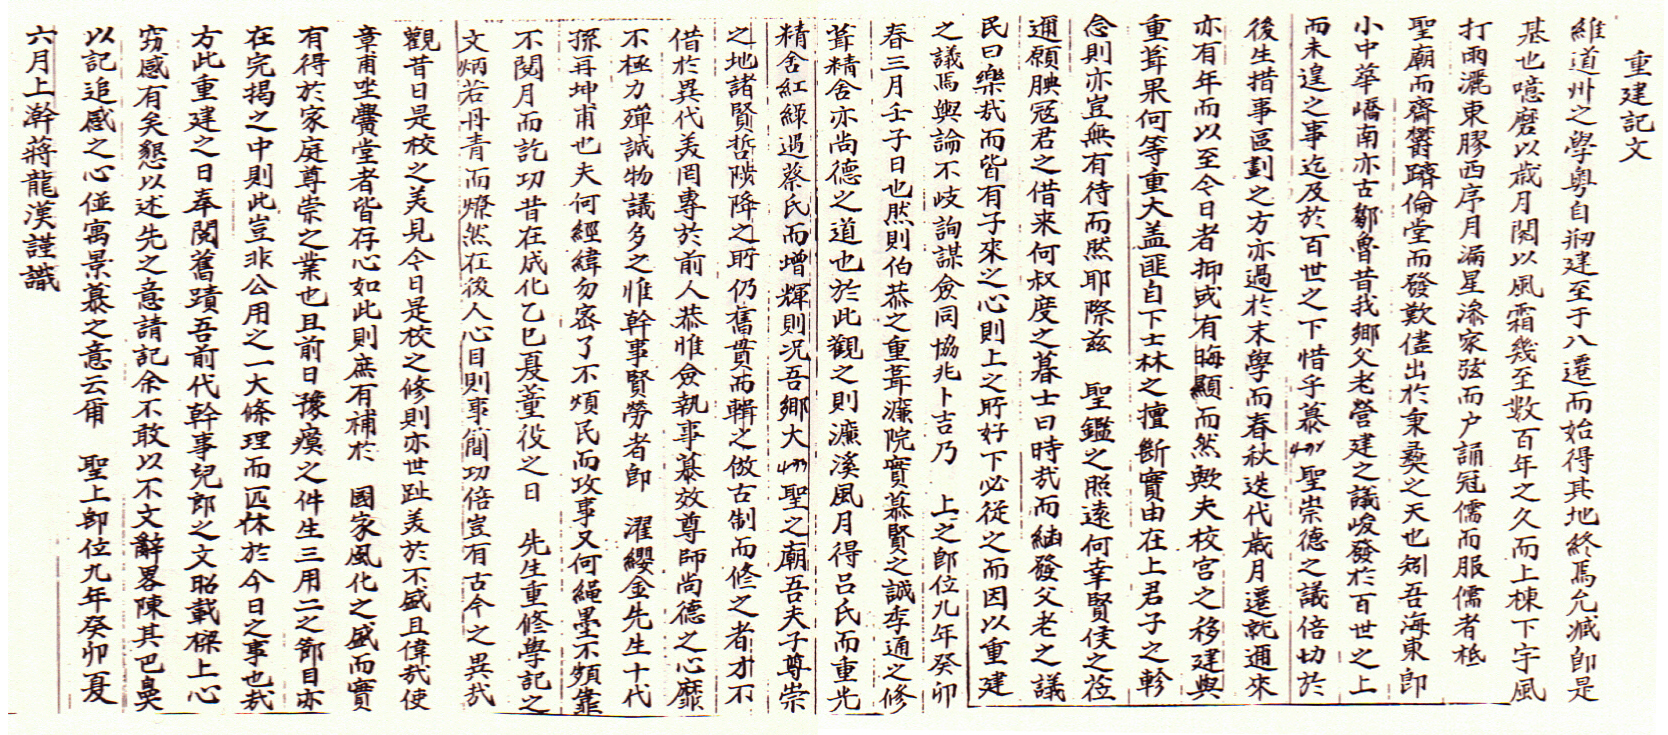 重建記文
維道州之學粤自剏建至于八遷而始得其地終焉允臧卽是
基也噫磨以歲月閱以風霜幾至數百年之久而上棟下宇風
打雨灑東膠西序月漏星滲家弦而户誦冠儒而服儒者柢
聖廟而齋欝躋倫堂而發歎儘出於秉彝之天也矧吾海東卽
小中華嶠南亦古鄒魯昔我鄉父老營建之議峻發於百世之上
而未遑之事迄及於百世之下惜乎慕聖崇德之議倍切於
後生措事區劃之方亦過於末學而春秋迭代歲月遷就邇來
亦有年而以至今日者抑或有晦顯而然歟夫校宮之移建與
重葺果何等重大盖匪自下士林之擅斷實由在上君子之軫
念則亦豈無有待而然耶際茲 聖鑑之照遠何幸賢侯之莅
邇願腆冦君之借来何叔度之暮士曰時哉而紬發父老之議
民曰樂哉而皆有子來之心則上之所好下必從之而因以重建
之議焉輿論不歧詢謀僉同協兆卜吉乃 上之卽位九年癸卯
春三月壬子日也然則伯恭之重葺濂院實慕賢之誠李通之修
葺精舍亦尚德之道也於此觀之則濂溪風月得吕氏而重光
精舍紅綠遇蔡氏而增輝則况吾鄉大聖之廟吾夫子尊崇
之地諸賢哲陟降之所仍舊貫而輯之倣古制而修之者才不
借於異代美罔專於前人恭惟僉執事慕效尊師尚德之心靡
不極力殫誠物議多之惟幹事賢勞者卽 濯纓金先生十代
孫再坤甫也夫何經緯勿宻了不煩民而攻事又何繩墨不頻靠
不閱月而訖功昔在成化乙巳夏董役之日 先生重修學記之
文炳若丹青而燎然在後人心目則事簡功倍豈有古今之異哉
觀昔日是校之美見今日是校之修則亦世趾美於不盛且偉哉使
章甫坐黌堂者皆存心如此則庶有補於 國家風化之盛而實
有得於家庭尊崇之業也且前日豫瘼之件生三用二之節目亦
在完揭之中則此豈非公用之一大條理而匹休於今日之事也哉
方此重建之日奉閱舊蹟吾前代幹事兒郎之文昭載樑上心
窃感有矣懇以述先之意請記余不敢以不文辭畧陳其巴臭
以記追感之心並寓景慕之意云爾 聖上卽位九年癸卯夏
六月上澣蔣龍漢謹識